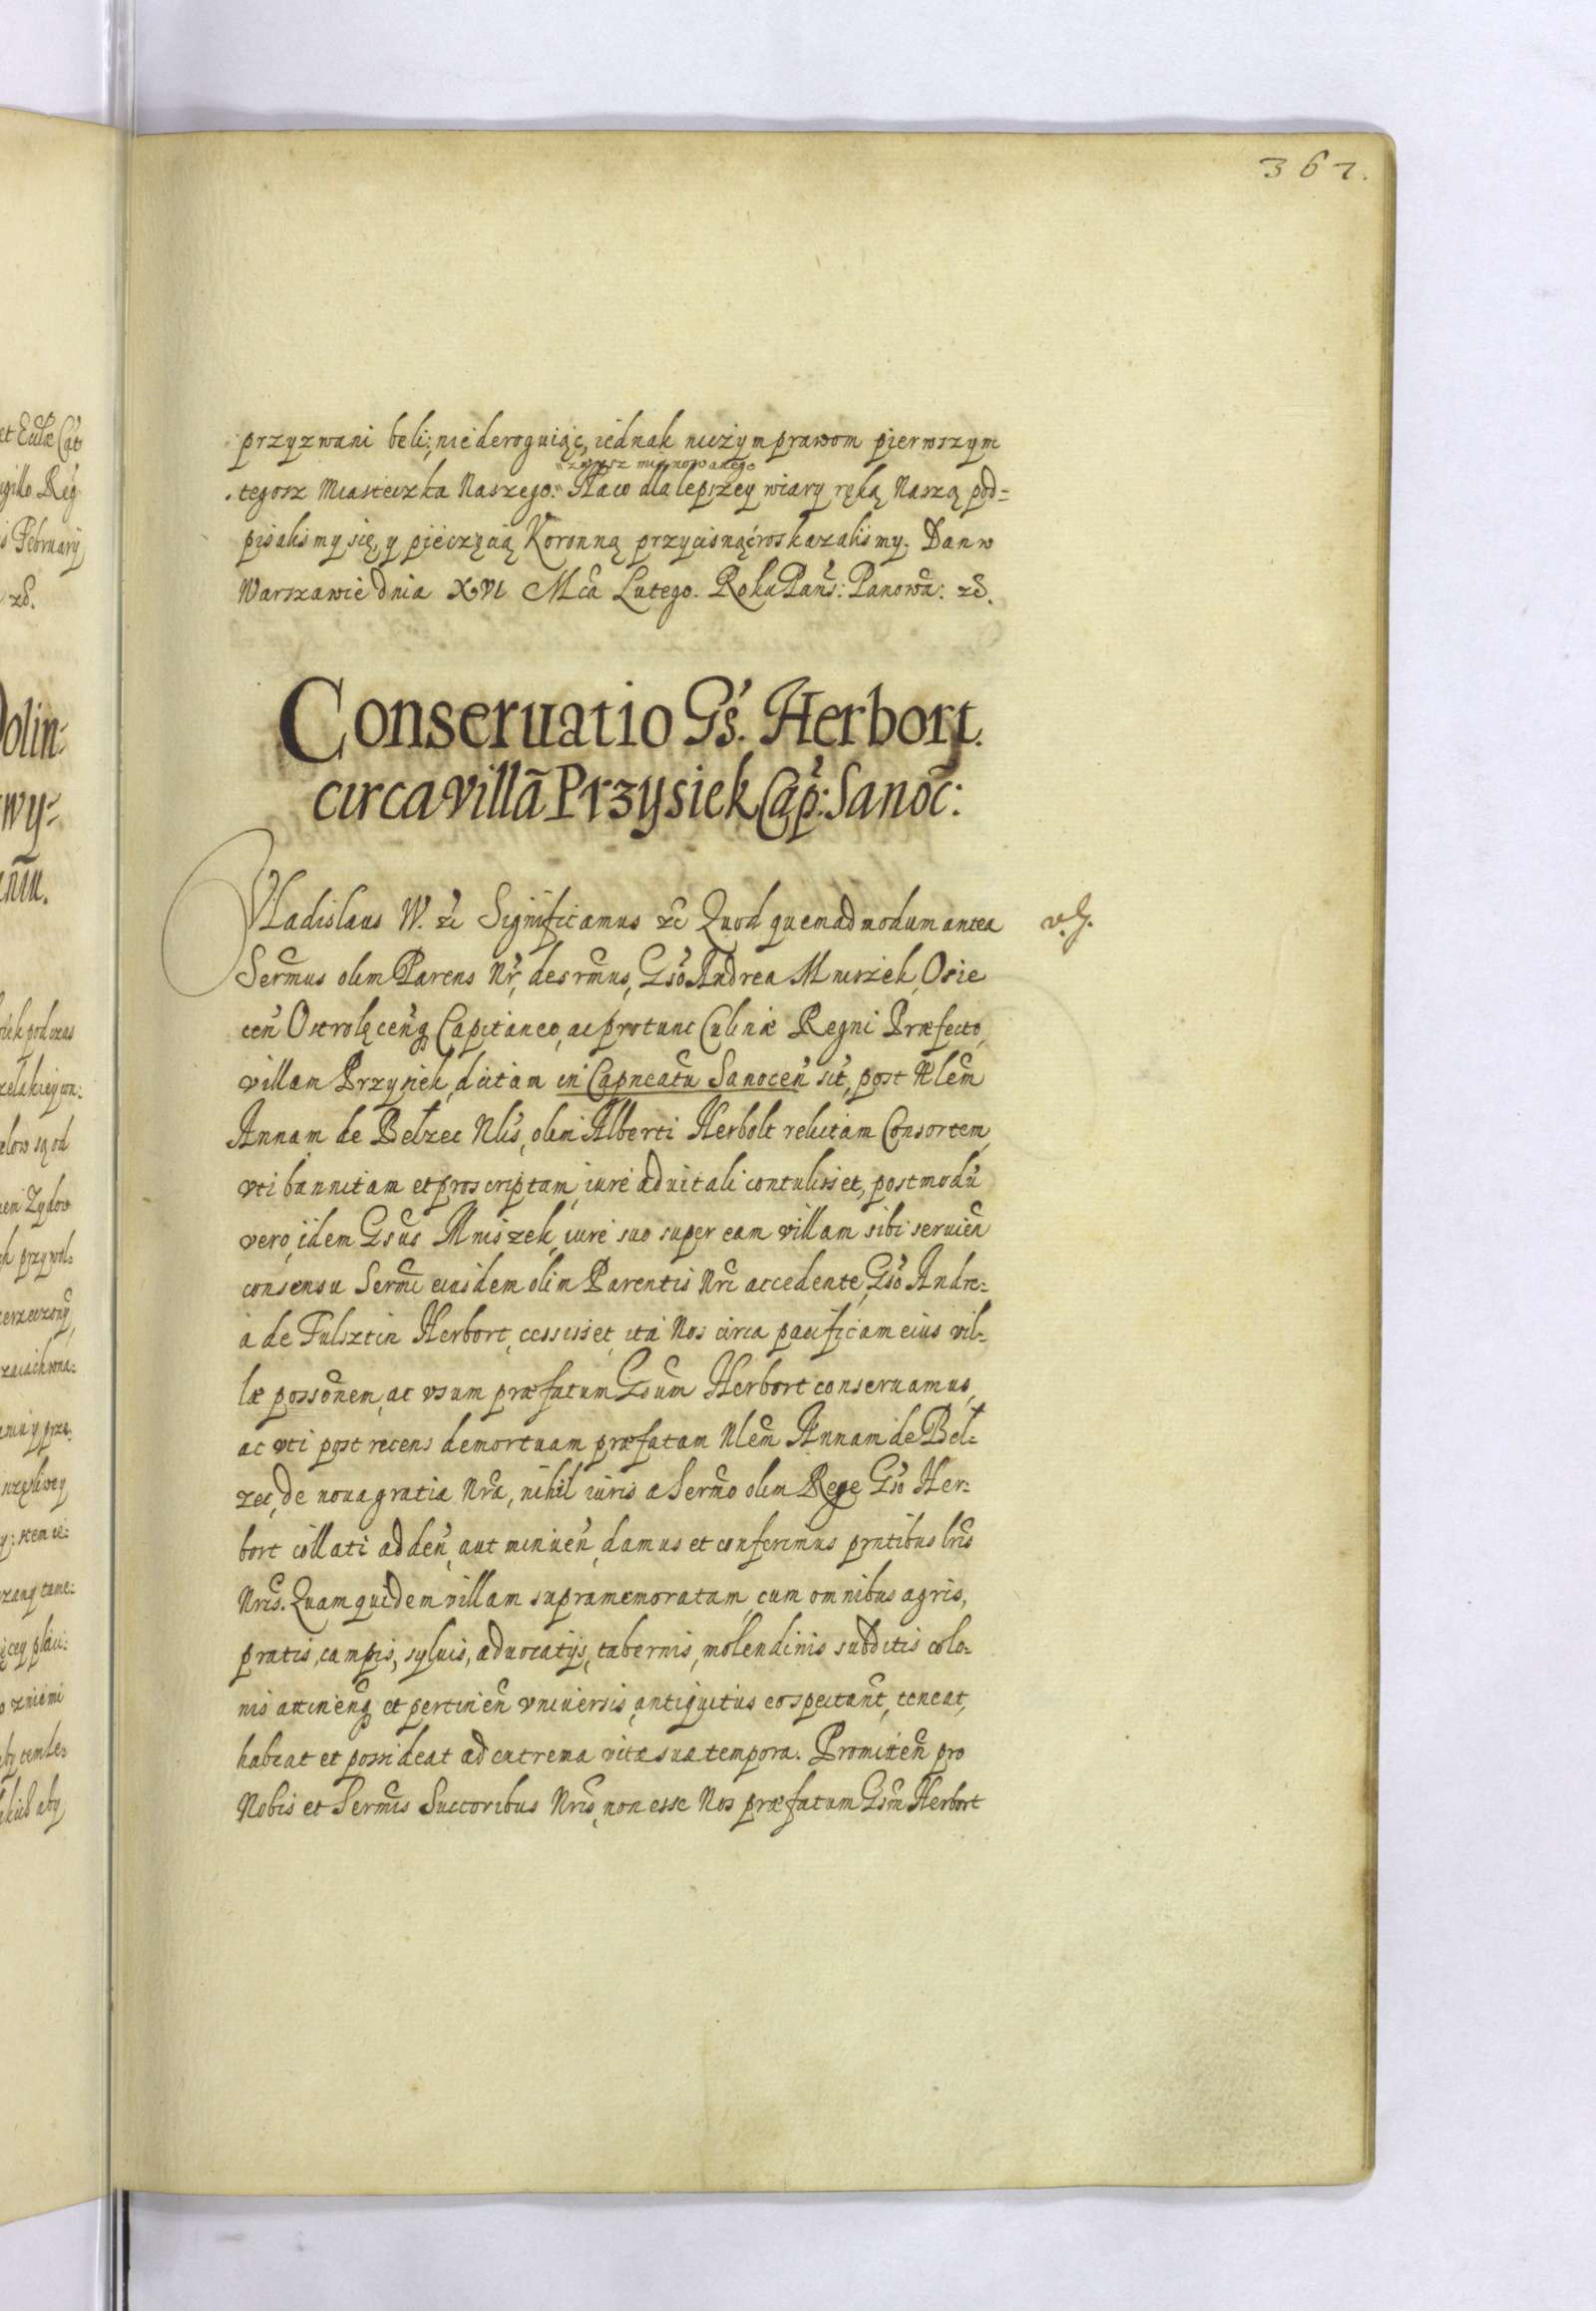 367.
przyzwani beli; nie deroguiąc, iednak niczym prawom pierwszym
zwysz mianowanego
tegosz Miasteczka Naszego. Naco dla lepszey wiary ręką Naszą pod=
pisalismy się, y pieczęcią Koronną przycisnąć roskazalismy. Dan w
Warszawie dnia XVI Mca Lutego. Roku Pans: Panowa: zc.
Conseruatio Gs. Herbort.
circa villã Przysiek Cap: Sanoc:
Vladislaus W. zc Significamus zc Quod quemadmodum antea
Sermus olim Parens Nr, desrmus, Gso Andrea Mniszek, Osie
cen Ostrolęcenq Capitaneo, ac protunc Culinæ Regni Præfecto,
villam Przysiek, dictam in Capneatu Sanocen sit, post Nlem
Annam de Bełzec Nlis, olim Alberti Herbolt relictam Consortem
vti bannitam et proscriptam iure aduitali contulisset, postmodu
vero, idem Gsus Mniszek, iure suo super eam villam sibi seruien
consensu Sermi eiusdem olim Parentis Nri accedente, Gso Andre=
a de Fulsztin Herbort, cessisset, ita Nos circa pacificam eius vil=
læ possonem, ac vsum præfatum Gsum Herbort conseruamus,
ac vti post recens demortuam præfatam Nlem Annam de Beł=
zec, de noua gratia Nra, nihil iuris a Sermo olim Rege Gso Her=
bort collati adden, aut minuen, damus et conferimus pntibus lris
Nris. Quam quidem villam supramemoratam, cum omnibus agris,
pratis, campis, syluis, aduocatijs, tabernis, molendinis subditis colo=
nis attinenq et pertinen vniuersis, antiquitus eo spectant, teneat,
habeat et possideat ad extrema vitæ suæ tempora. Promitten pro
Nobis et Sermis Succoribus Nris, non esse Nos præfatum Gsm Herbort